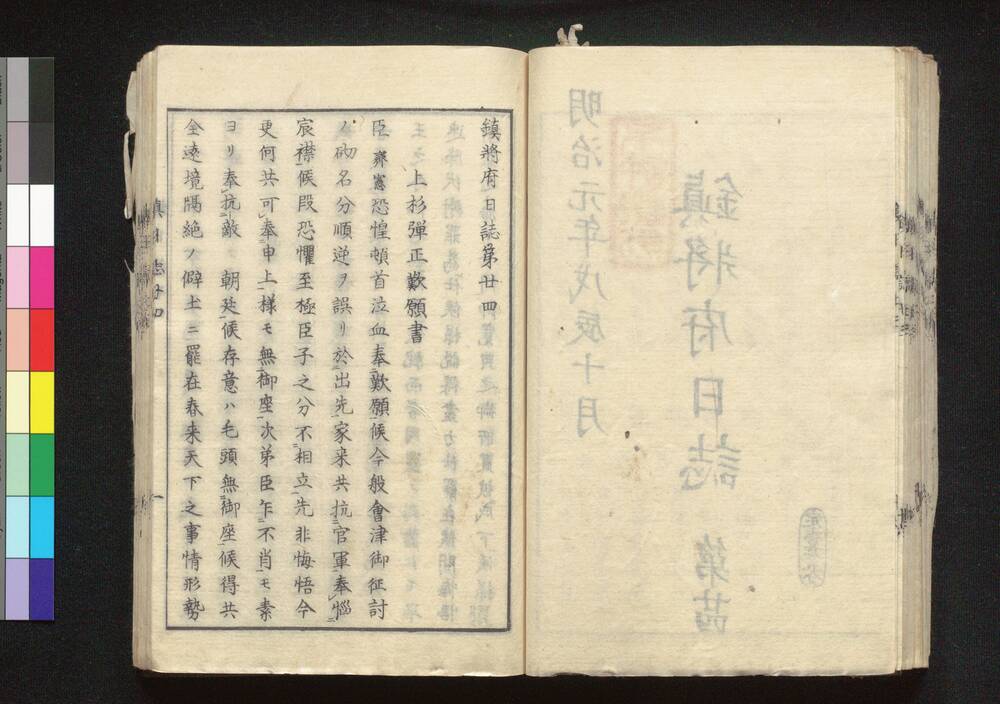 明治元年戊辰十月
鎮将府日誌 第廿四
鎮将府日誌第廿四
上杉彈正歎願書
臣齊憲恐惶頓首泣血奉歎願候今般會津御征討
ノ砌名分順逆ヲ誤リ於出先家来共抗官軍奉惱
宸襟候段恐懼至極臣子之分不相立先非悔悟今
更何共可奉申上様モ無御座次第臣乍不肖モ素
ヨリ奉抗敵 朝廷候存意ハ毛頭無御座候得共
全遠境隔絶ノ僻土ニ罷在春来天下之事情形勢